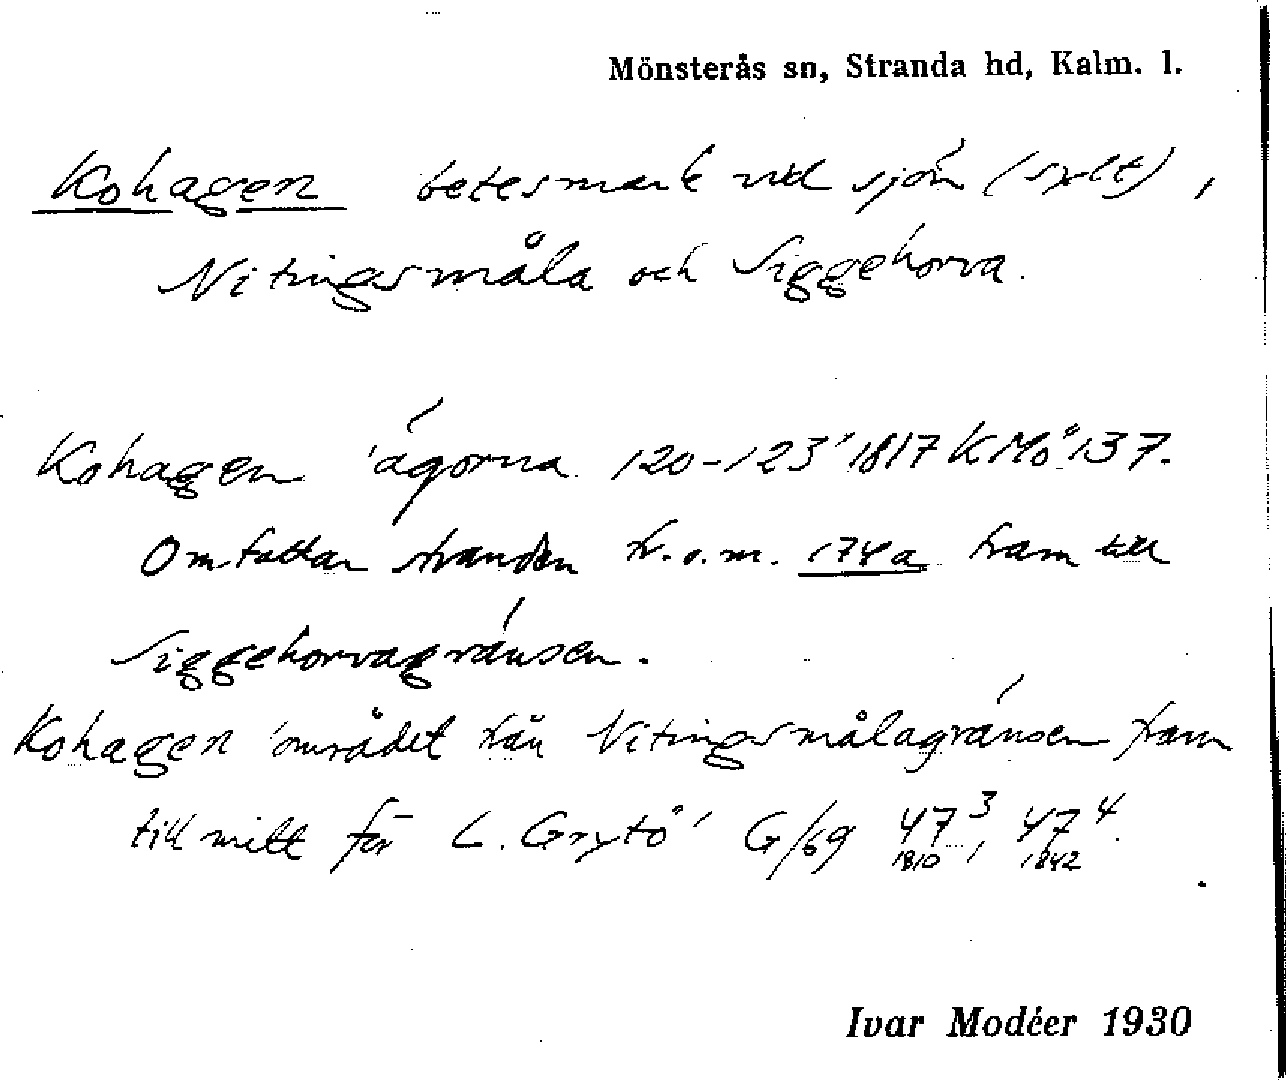 Mönsterås sn, Stranda hd, Kalm. l.
Kohagen betesmark vid sjön (sylt),
Nitingsmåla och Siggehorva.
Kohagen 'ägorna 120-123' 1817 KMö 137.
Omfattar stranden fr.o.m. 174a fram till
Siggehorvagränsen.
Kohagen 'området från Nitingsmålagränsen fram
till mitt för L. Grytö' G/69 47³ 1810, 47⁴ 1842
Ivar Modéer 1930